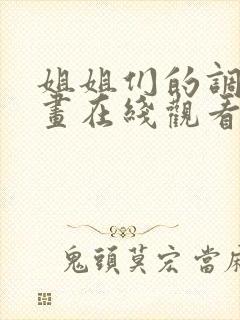 姐姐们的調
畫在綫觀看
鬼頭莫宏當麻